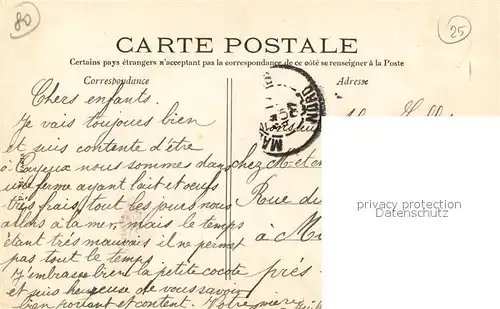 80
25
CARTE POSTALE
Certains pays étrangers n'acceptant pas la correspondance de ce côté se renseigner à la Poste
Correspondance
Adresse
Chers enfants.
Je vais toujours bien
et suis contente d'être
à Cayeux nous sommes dans
une ferme ayant lait et oeufs
très frais, tout les jours nous
allons à la mer, mais le temps
étant très mauvais il ne permet
pas tout le temps
J'embrasse bien la petite cocote
et suis heureuse de vous savoir
bien portant et content. Votre mère
NORD
chez M. et
Rue du
à
près
Privatsphäre
Datenschutz